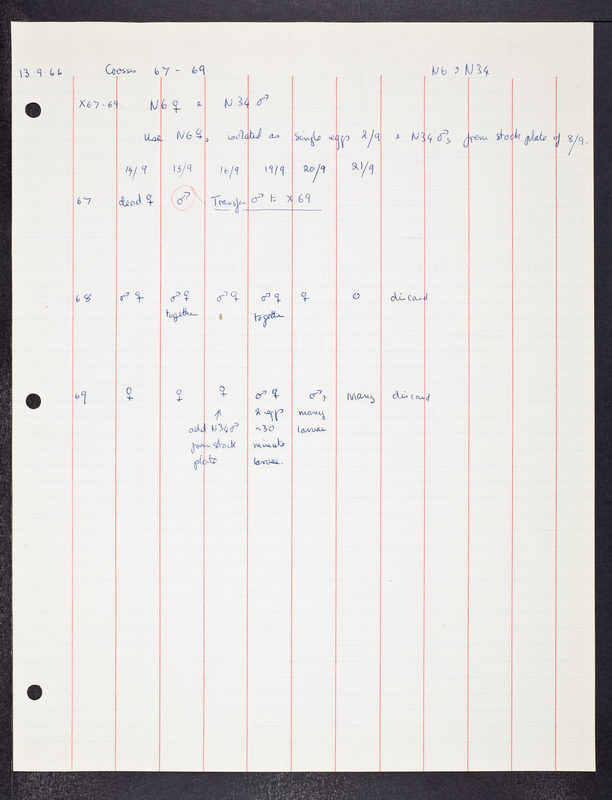 13.9.66 Crosses 67 - 69 N6 , N34.
X67-69. N6 ♀ x N34 ♂
Use N6 ♀s isolated as single eggs 2/9 x N34 ♂s from stock plate of 8/9.
14/9 15/9 16/9 19/9 20/9 21/9
67 dead ♀ ♂ Transfer ♂ to X 69
68 ♂ ♀ ♂ ♀ ♂ ♀ ♂ ♀ ♀ 0 discard
together together
69 ♀ ♀ ♀ ♂ ♀ ♂, Many discard
↑ 2 eggs many
add N34 ♂ ~30 larvae
from stock minute
plate larvae.